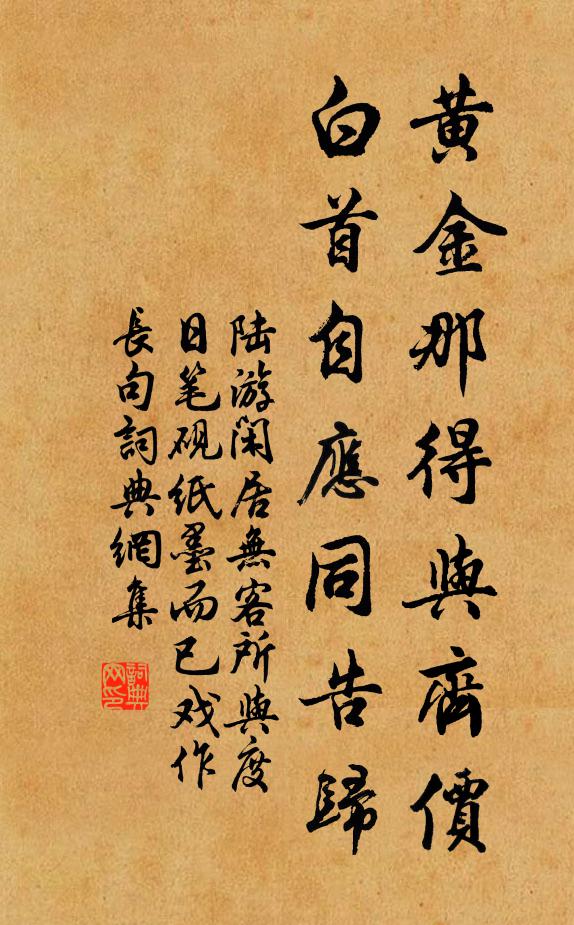 黃金那得與齊價
白首自應同告歸
陆游闲居無客所與度
日笔硯纸墨而已戏作
長句詞典網集
詞典網印